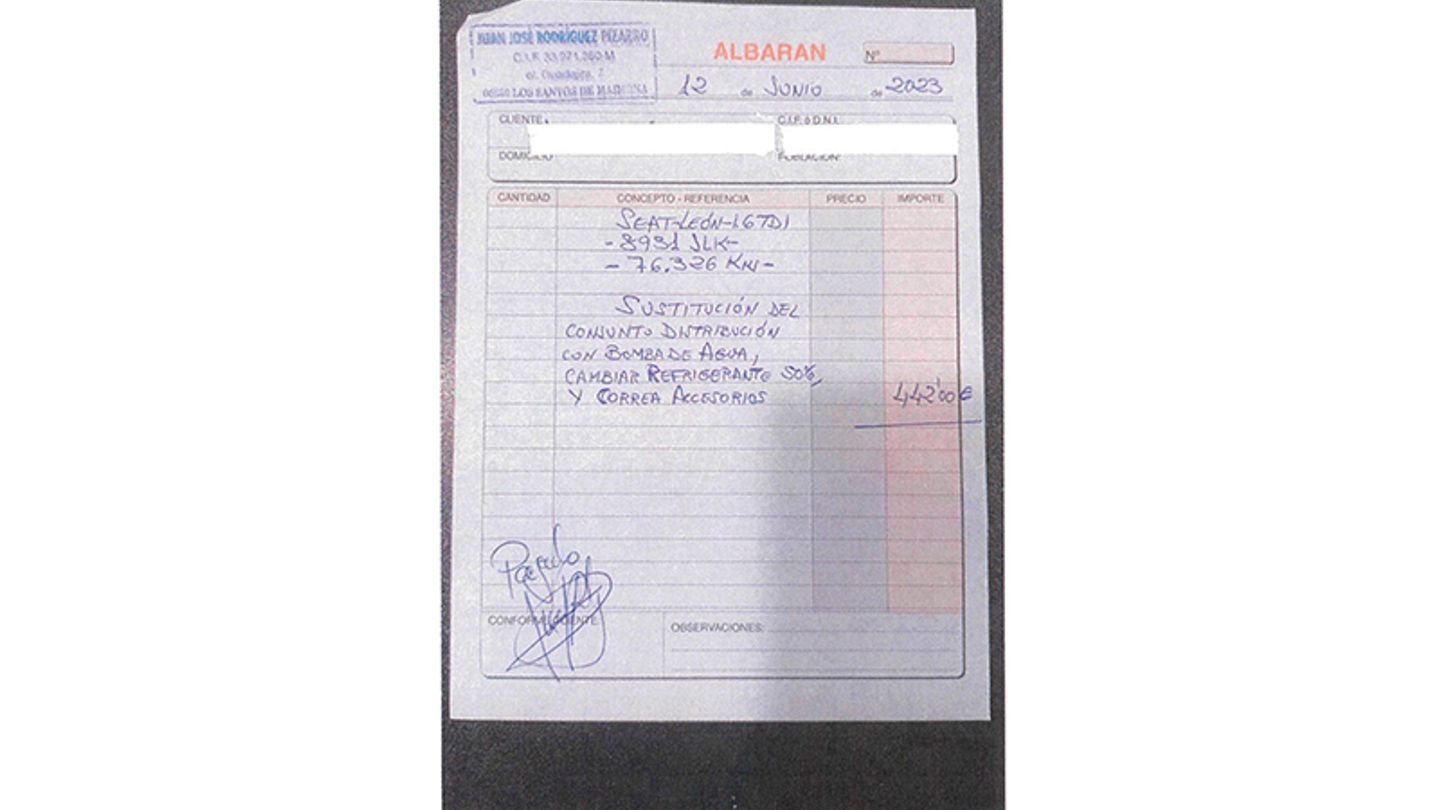 JUAN JOSÉ RODRÍGUEZ PIZARRO
C.I.F. 33.971.360-M
c/. Guadajira, 2
06230 LOS SANTOS DE MAIMONA
ALBARAN Nº
12 de JUNIO de 2023
CLIENTE C.I.F. ó D.N.I.
DOMICILIO POBLACION
CANTIDAD CONCEPTO - REFERENCIA PRECIO IMPORTE
SEAT-LEÓN-1.6TDI
- 8931 JLK-
- 76.326 KM -
SUSTITUCIÓN DEL
CONJUNTO DISTRIBUCIÓN
CON BOMBA DE AGUA,
CAMBIAR REFRIGERANTE 50%,
Y CORREA ACCESORIOS 442'00 €
Pagado
CONFORME CLIENTE OBSERVACIONES: